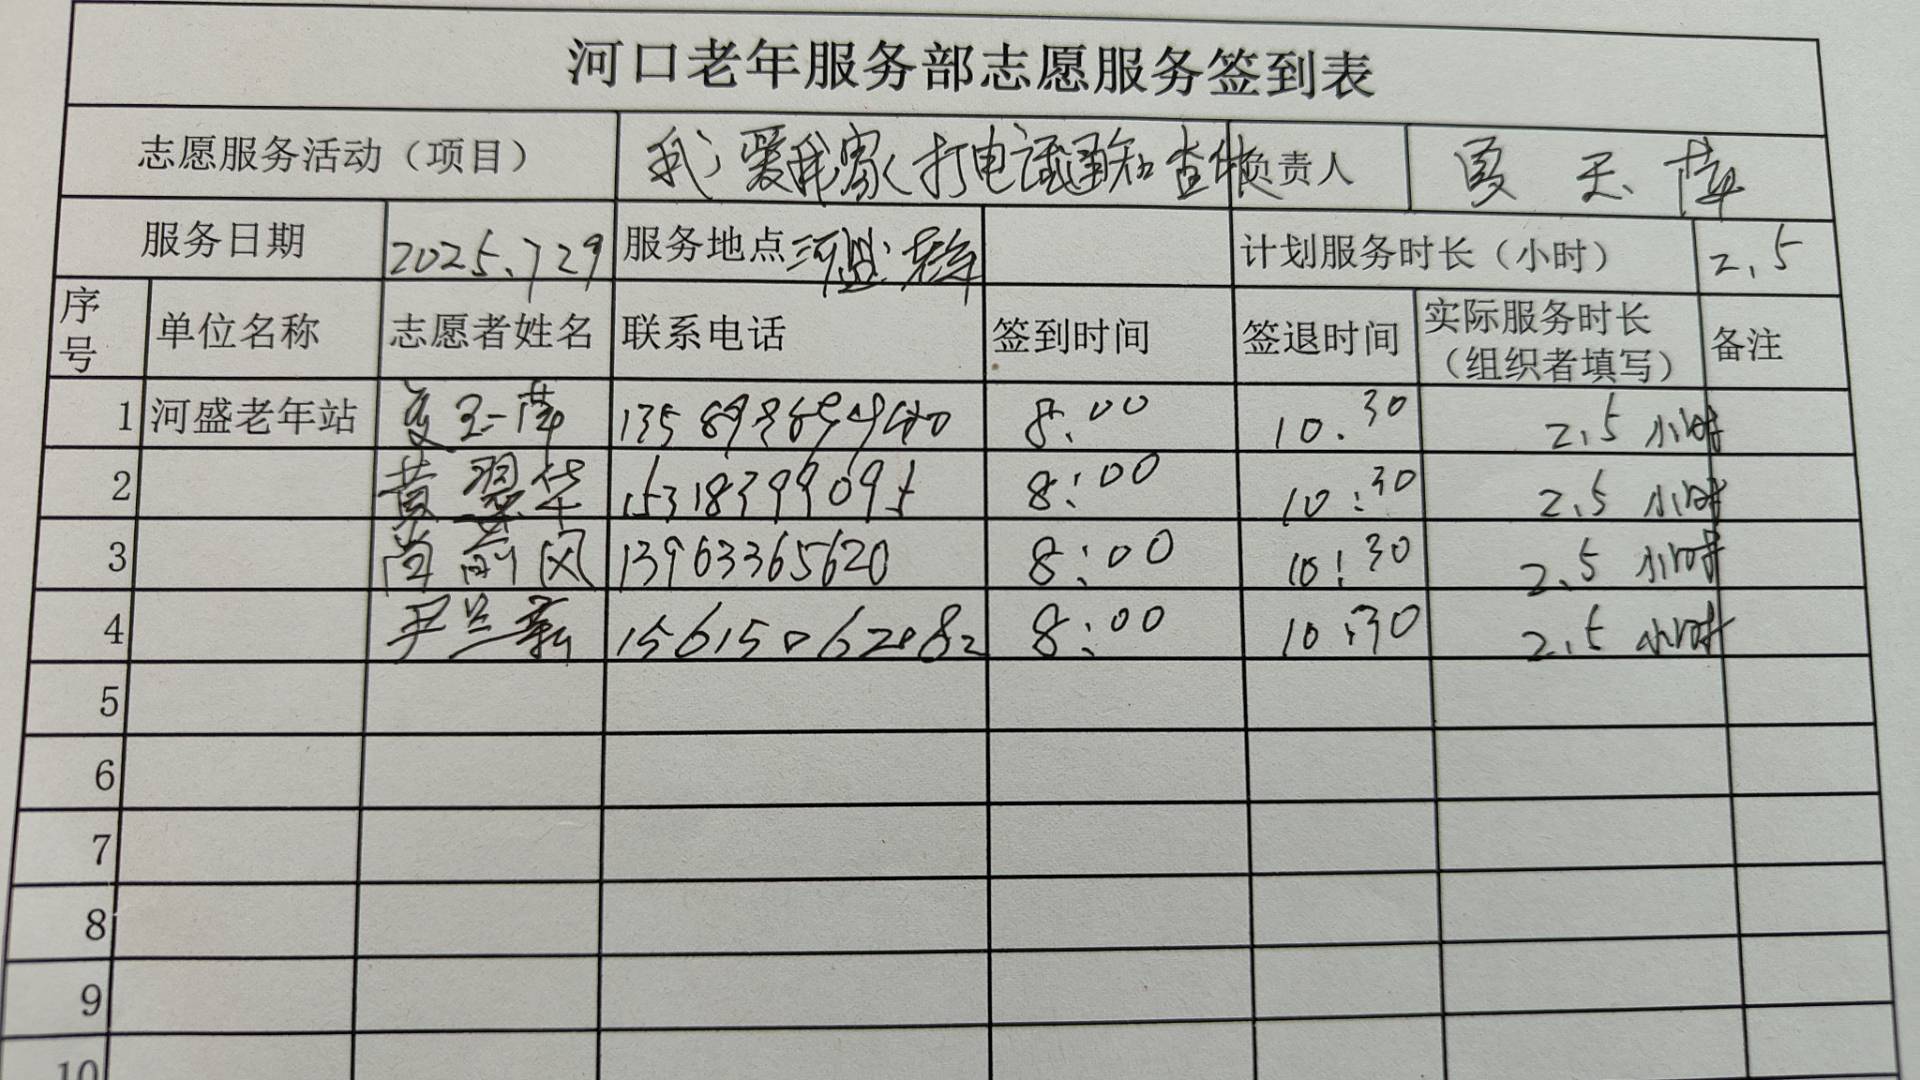 河口老年服务部志愿服务签到表
志愿服务活动（项目） 我爱我家打电话通知查体 负责人 夏玉萍
服务日期 2025.7 29 服务地点 河盛老年 计划服务时长（小时） 2.5
序号 单位名称 志愿者姓名 联系电话 签到时间 签退时间 实际服务时长（组织者填写） 备注
1 河盛老年站 夏玉萍 8:00 10:30 2.5 小时
2 黄翠华 15318399095 8:00 10:30 2.5 小时
3 尚前风 13963365620 8:00 10:30 2.5 小时
4 尹兰 15615062082 8:00 10:30 2.5 小时
5
6
7
8
9
10